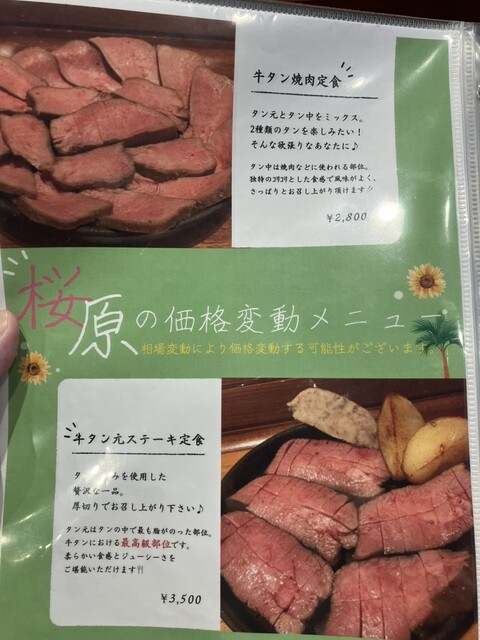 牛タン焼肉定食
タン元とタン中をミックス。
2種類のタンを楽しみたい！
そんな欲張りなあなたに♪
タン中は焼肉などに使われる部位。
独特のコリコリとした食感で風味がよく、
さっぱりとお召し上がり頂けます
¥2,800
桜原の価格変動メニュー
相場変動により価格変動する可能性がございます。
牛タン元ステーキ定食
みを使用した
贅沢な一品。
厚切りでお召し上がり下さい♪
タン元はタンの中で最も脂がのった部位。
牛タンにおける最高級部位です。
柔らかい食感とジューシーさを
ご堪能いただけます!!
¥3,500